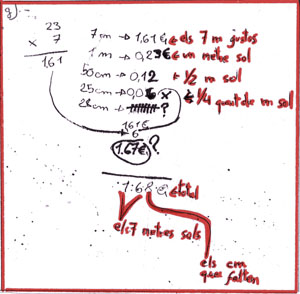 23
x 7
161
7 m → 1,61€ ← els 7 m justos
1 m → 0,23€ ← un metre sol
50cm → 0,12 ← 1/2 m sol
25cm → 0,06 x ← 1/4 quart de m sol
28cm → ?
161€
6
1.67€?
1.68€ total
els 7 metres sols
els cm
que falten